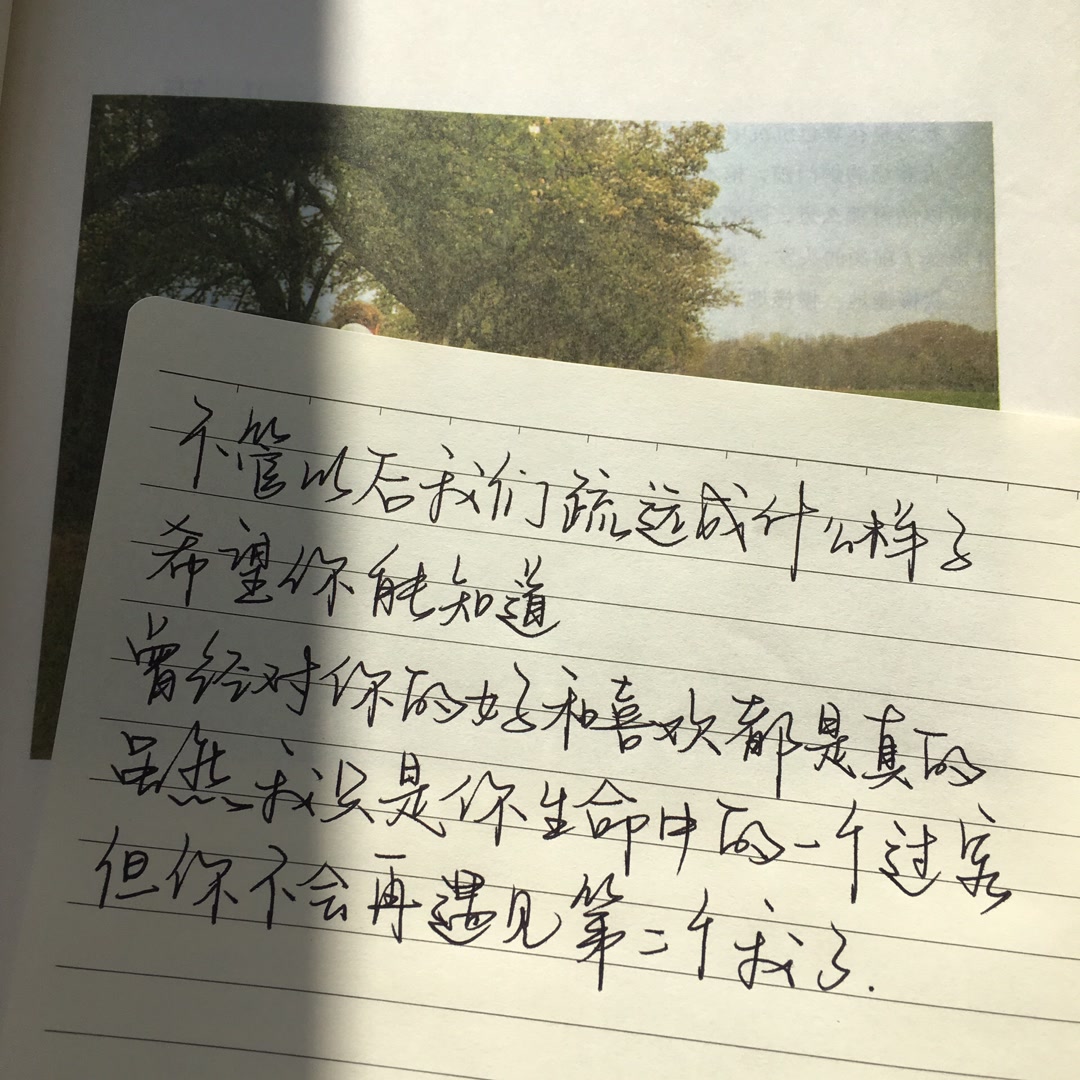 不管以后我们疏远成什么样子
希望你能知道
曾经对你的好和喜欢都是真的
虽然我只是你生命中的一个过客
但你不会再遇见第二个我了.